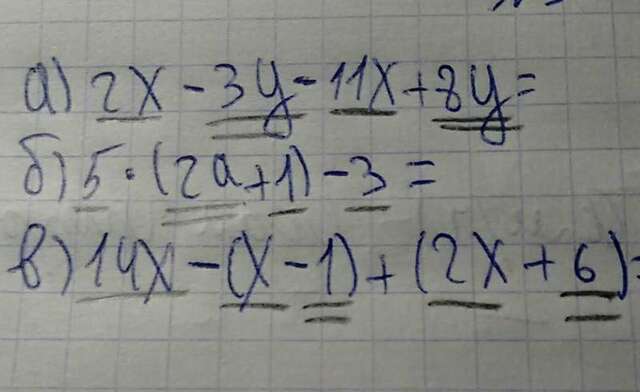 а) 2x - 3y - 11x + 8y =
б) 5 · (2a + 1) - 3 =
в) 14x - (x - 1) + (2x + 6) =